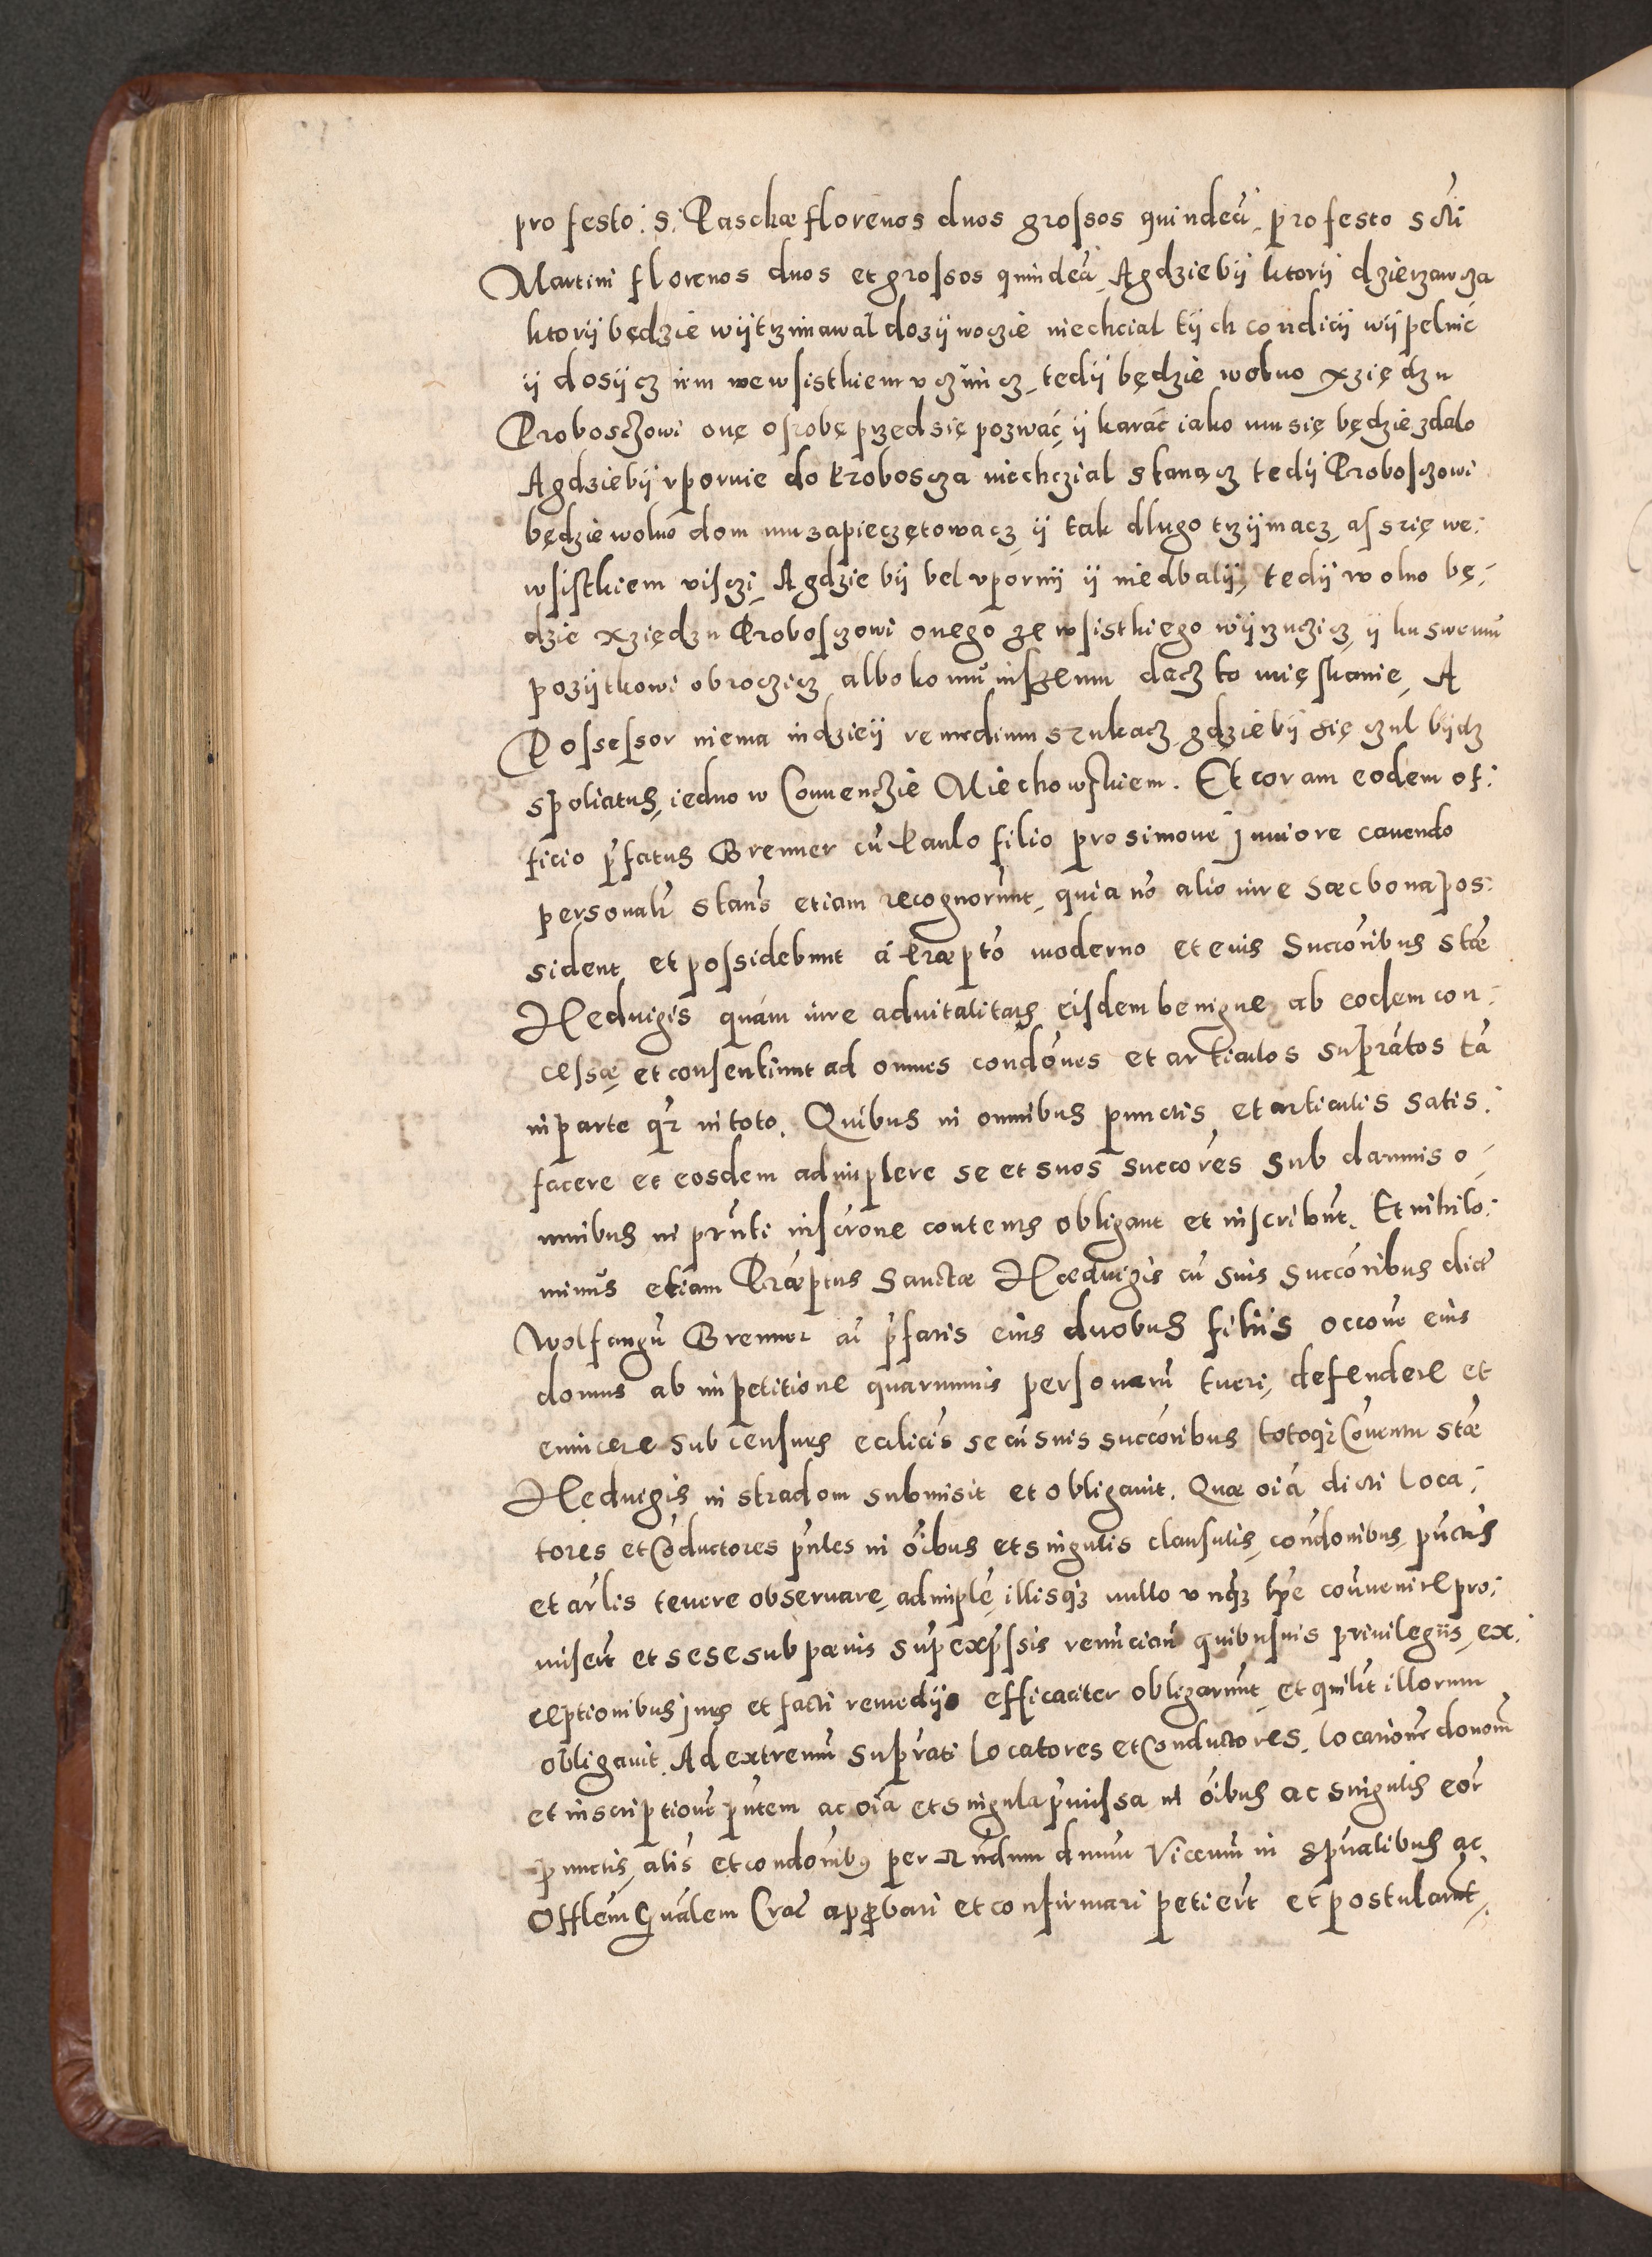 pro festo: S: Paschæ florenos duos grossos quindecī, pro festo scti
Martini florenos duos et grossos quindecī, A gdziebÿ ktorÿ dzierzawcza
ktorÿ będzie wÿtrzimawał dozÿwoczie niechcial tÿch condicÿ wÿpelnić
ÿ dosÿcz iem wewsistkiem vczinicz, tedÿ będzie wolno xzię dzu
Proboszczowi onę osobę przed się pozwać ÿ karać iako mu się będzie zdalo
A gdziebÿ vpornie do Proboscza niechczial stanącz tedÿ Proboszczowi
będzie wolno dom mu zapieczętowacz ÿ tak dlugo trzÿmacz, asz się we:
wsistkiem viszczi, A gdzie bÿ bel vpornÿ ÿ niedbalÿ, tedÿ wolno bę-
dzie xziędzu Proboszczowi onego ze wsistkiego wÿrzuczicz ÿ ku swemu
pozÿtkowi obroczicz albo komu inszemu dacz to mięskanie, A
Possessor niema indzieÿ remedium szukacz gdziebÿ się czul bÿdz
spoliatus, iedno w Conuenczie Miechowskiem. Et coram eodem of:
ficio p̄fatus Brenner cū Paulo filio pro Simone Juniore cauendo
personalr̄ stans etiam recognorūnt, quia nō alio iure hæc bona pos:
sident et possidebunt a Præpto moderno et eius Succoribus Stæ
Heduigis quam iure aduitalitatis eisdem benigne ab eodem con:
cessæ et consentiunt ad omnes condōnes et articulos supratos tā
in parte qr̄ in toto. Quibus in omnibus punctis et articulis satis:
facere et eosdem adimplere se et suos succores sub damnis o-
mnibus in prn̄ti inscrone contentis obligant et inscribūnt. Et nihilo:
minus etiam Præptus Sanctæ Heduigis cū suis Succoribus dictū
Wolfangū Brenner cū p̄fatis eius duobus filiis occōne eius
domus ab impetitione quarumuis personarū tueri, defendere et
euincere sub censuris ecclicis se cū suis succoribus totoq̄ Couentu Stæ
Heduigis in Stradom submisit et obligauit. Quæ oīa dicti Loca:
tores et Cōductores p̄ntes in oībus et singulis clausulis, condonibus, pūctis
et arlis tenere obseruare, adimplē, illisqȝ nullo vnqȝ tp̄e conuenire pro:
miserūt et sese sub pœnis sup̄expssis renūcianū quibusuis priuilegiis, ex:
ceptionibus Juris et facti remedÿs efficaciter obligarūnt et quilt illorum
obligauit. Ad extremū suprati Locatores et Conductores, locationē donom̄
et inscriptionē p̄ntem ac oīa et singula p̄missa in oībus ac singulis eor̄
punctis, atis et condonibȝ per Rndum dnum Viceum in spualibus ac
Offlem Gn̄alem Crac approbari et confirmari petierūt et postularūt.